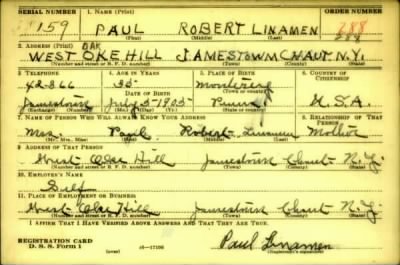 SERIAL NUMBER 1. NAME (Print) ORDER NUMBER
1159 PAUL ROBERT LINAMEN 288
(First) (Middle) (Last)
2. ADDRESS (Print)
OAK
WEST OKE HILL JAMESTOWN CHAUT. N.Y.
(Number and street or R. F. D. number) (Town) (County) (State)
3. TELEPHONE 4. AGE IN YEARS 5. PLACE OF BIRTH 6. COUNTRY OF CITIZENSHIP
42-866 35
Jamestown July 5-1905 Penna U.S.A.
7. NAME OF PERSON WHO WILL ALWAYS KNOW YOUR ADDRESS 8. RELATIONSHIP OF THAT PERSON
Mrs Paul Robert Linamen Mother
(Mr., Mrs., Miss) (First) (Middle) (Last)
9. ADDRESS OF THAT PERSON
West Oke Hill Jamestown Chaut N.Y.
(Number and street or R. F. D. number) (Town) (County) (State)
10. EMPLOYER'S NAME
Self
11. PLACE OF EMPLOYMENT OR BUSINESS
West Oke Hill Jamestown Chaut N.Y.
(Number and street or R. F. D. number) (Town) (County) (State)
I AFFIRM THAT I HAVE VERIFIED ABOVE ANSWERS AND THAT THEY ARE TRUE.
REGISTRATION CARD
D. S. S. Form 1 16-17105 Paul Linamen
(Registrant's signature)